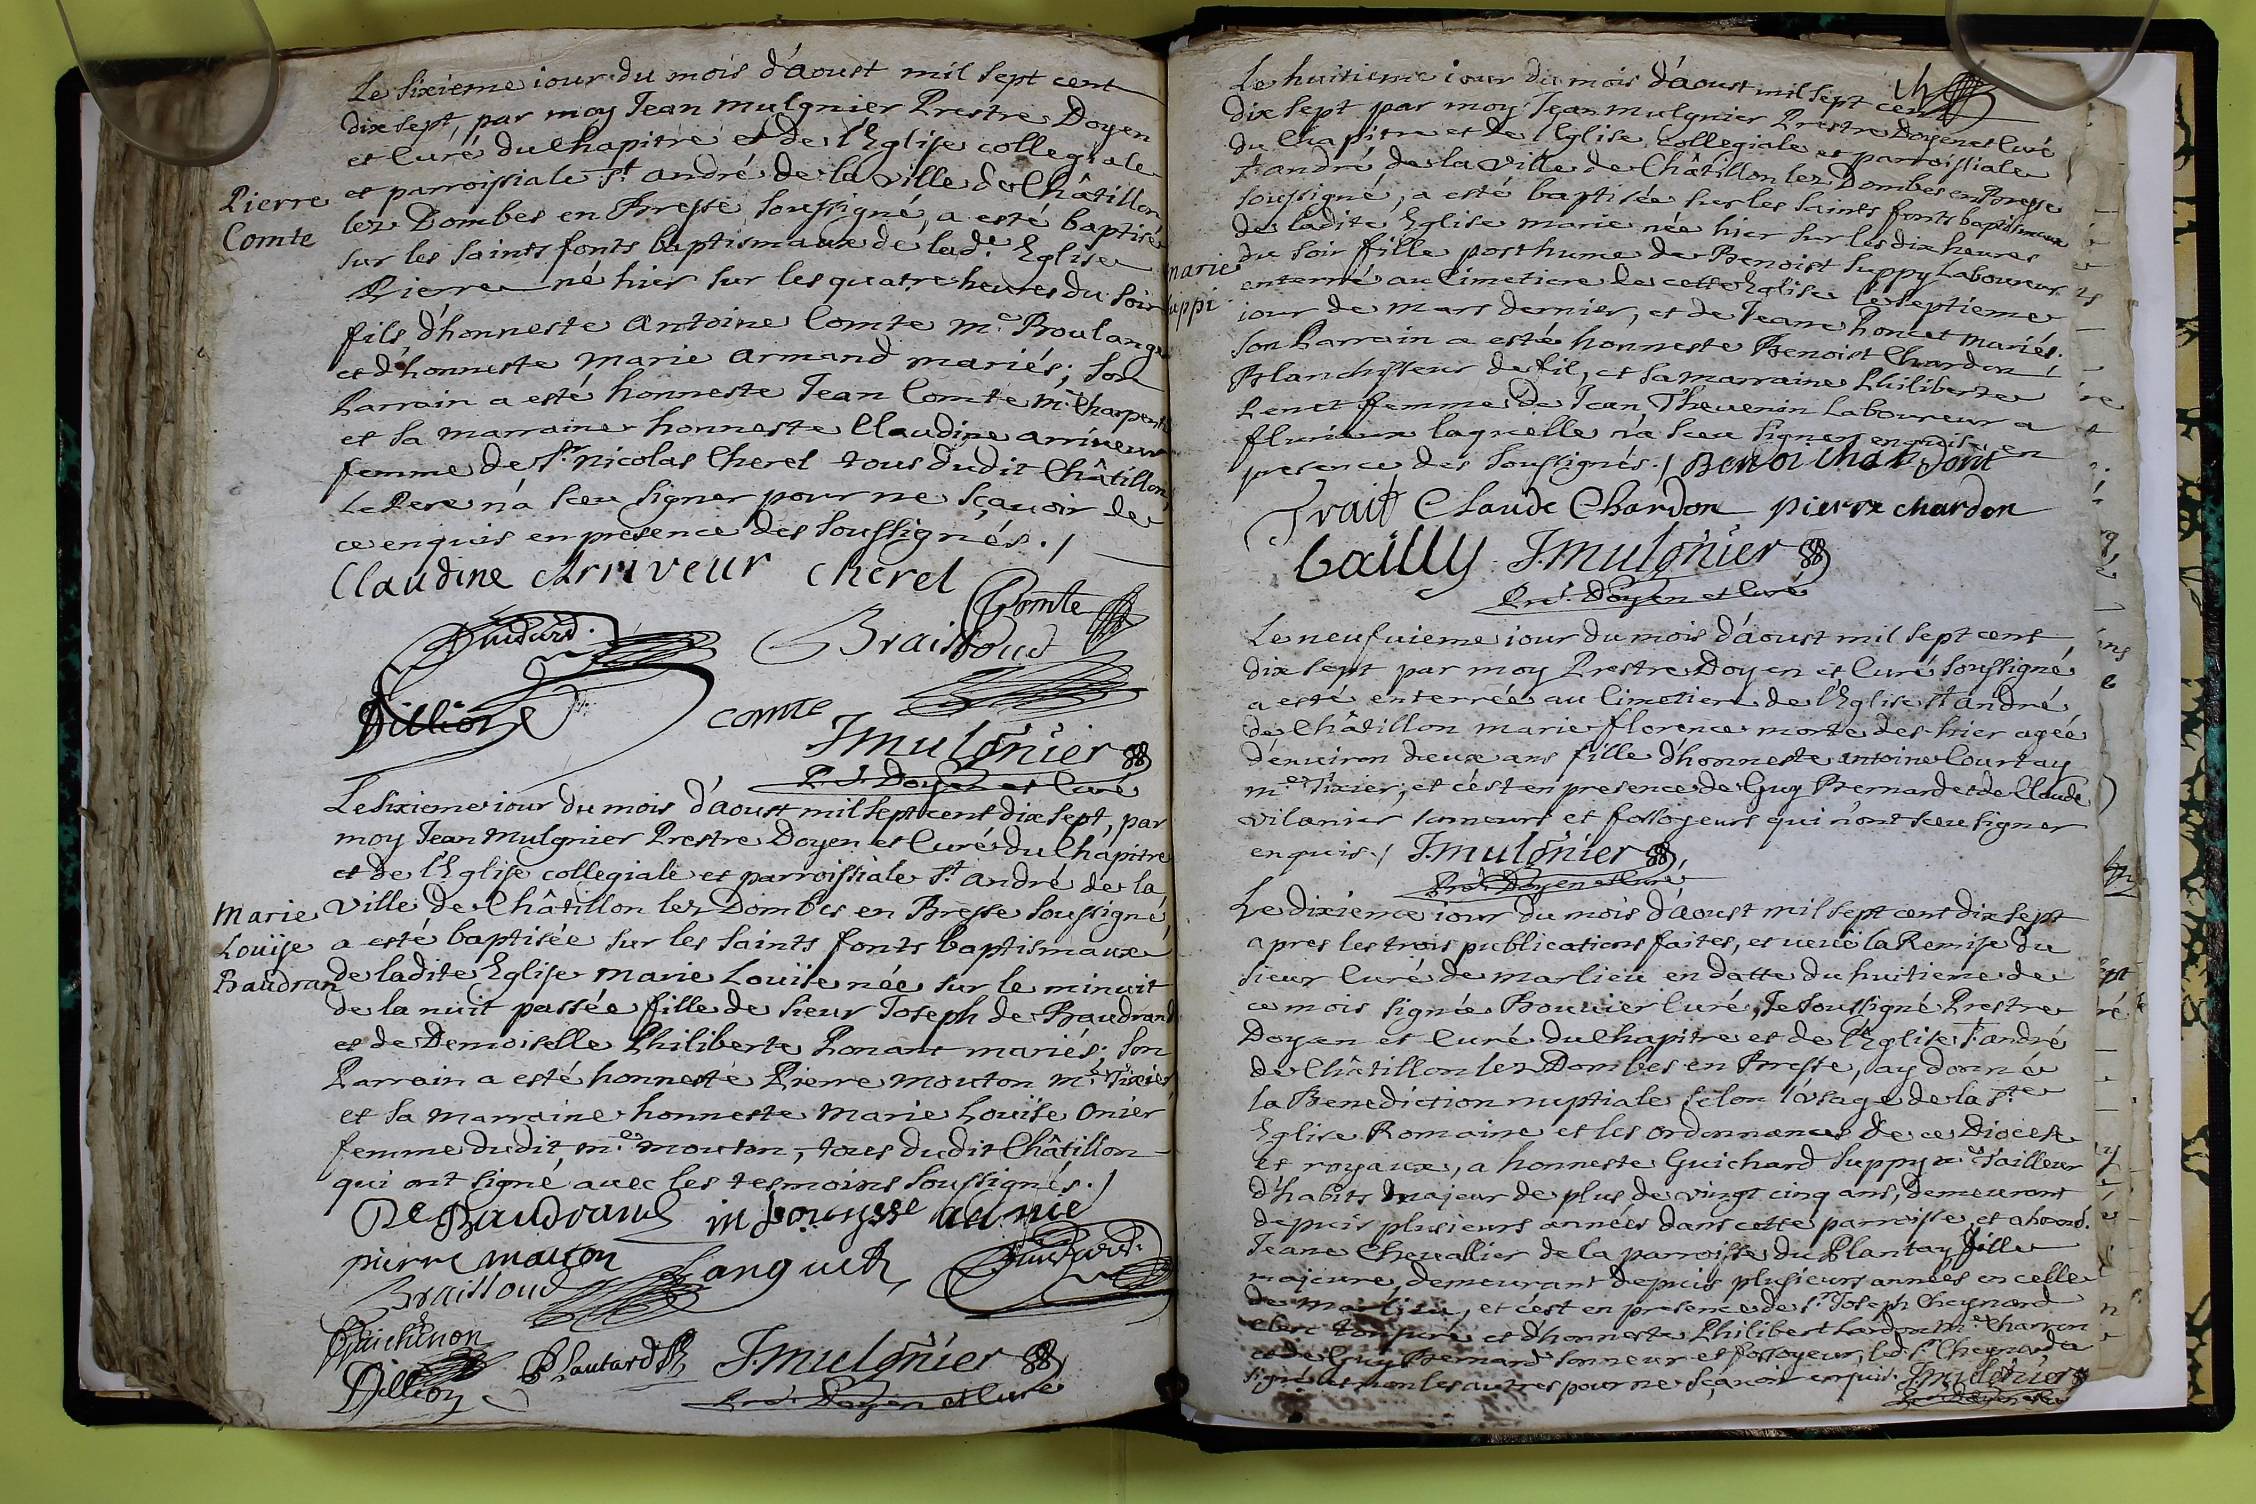 Le sixieme iour du mois d'aoust mil sept cent
dix sept, par moy Jean mulgnier Prestre Doyen
et Curé du Chapitre et de l'Eglise collegiale
et parroissiale St andré de la ville de Châtillon
Pierre
Comte
lez Dombes en Bresse soussigné, a esté baptisé
sur les saints fonts baptismaux de lad.e Eglise
Pierre né hier sur les quatre heures du soir
fils d'honneste Antoine Comte m.e Boulanger
et d'honneste Marie Armand mariés; son
Parrain a esté honneste Jean Comte m.e Charpent
et sa marraine honneste Claudine arriveur
femme de Sr Nicolas Cherel tous dudit Châtillon,
Le Pere n'a sceu signer pour ne sçavoir de
ce enquis en presence des soussignés./
Claudine Arriveur cherel
Comte
Buidard Braissoud
Dillion comte
J.mulgnier
P.re Doyen et Curé
Le sixieme iour du mois d'aoust mil sept cent dix sept, par
moy Jean Mulgnier Prestre Doyen et Curé du Chapitre
et de l'Eglise collegiale et parroissiale St. andré de la
Marie
Louïse
Baudran
ville de Châtillon lez Dombes en Bresse soussigné,
a esté baptisée sur les saints fonts baptismaux
de ladite Eglise Marie Louïse née sur le minuit
de la nuit passée fille de sieur Joseph de Baudrand
et de Demoiselle Philiberte Ronant mariés; son
Parrain a esté honneste Pierre Mouton m.e Tixier
et sa marraine honneste Marie Louïse Onier
femme dudit m.e mouton, tous dudit Châtillon
qui ont signé avec les tesmoins soussignés./
De Baudrand m
pierre mouton Languet Buidard
Braissoud
Guichenon
Dillion Plautard J.mulgnier
Pre. Doyen et Curé
Le huitieme iour du mois d'aoust mil sept cent
dix sept par moy Jean Mulgnier Prestre Doyen et Curé
du Chapitre et de l'Eglise collegiale et parroissiale
St andré de la ville de Châtillon lez Dombes en Bresse
soussigné, a esté baptisée sur les saints fonts baptismaux
de ladite Eglise Marie née hier sur les dix heures
Marie
uppi
du soir fille posthume de Benoist Suppy Laboureur
enterré au Cimetiere de cette Eglise le septieme
iour de mars dernier, et de Jeane Poncet mariés.
Son Parrain a esté honneste Benoist Chardon
Blanchisseur de fil, et sa marraine Philiberte
Penet femme de Jean Thevenin Laboureur a
flurieux laquelle n'a sceu signer enquise en
presence des soussignés./ Benoi Chardont
Trait Claude Chardon pierre chardon
Bailly J.mulgnier
Pre. Doyen et Curé
Le neufuieme iour du mois d'aoust mil sept cent
dix sept par moy Prestre Doyen et Curé soussigné
a esté enterrée au Cimetiere de l'Eglise St andré
de Châtillon marie florence morte des hier agée
d'environ deux ans fille d'honneste antoine Courtay
m.e Tixier, et c'est en presence de Guy Bernard et de Claude
vilanier sonneurs et fossoyeurs qui n'ont sceu signer
enquis./ J.mulgnier
Pre. Doyen et Curé
Le dixieme iour du mois d'aoust mil sept cent dix sept
apres les trois publications faites, et veuë la Remise du
sieur Curé de Marlieu en datte du huitieme de
ce mois signée Bouvier Curé, Je soussigné Prestre
Doyen et Curé du Chapitre et de l'Eglise St andré
de Châtillon lez Dombes en Bresse, ay donné
la Benediction nuptiale selon l'usage de la Ste
Eglise Romaine et les ordonnances de ce Diocese
et royaux, a honneste Guichard Suppy m.e Tailleur
d'habits majeur de plus de vingt cinq ans, demeurant
depuis plusieurs années dans cette parroisse, et a honnê.
Jeane Chevallier de la parroisse du Plantay fille
majeure, demeurant depuis plusieurs années en celle
de Marlieu, et c'est en presence de Sr Joseph Cheynard
Clerc tonsuré et d'honneste Philibert Lardon m.e Charron
et de Guy Bernard sonneur et fossoyeur, led. Sr Cheynard a
signé et non les autres pour ne sçavoir enquis. J.mulgnier
Pre Doyen et Curé